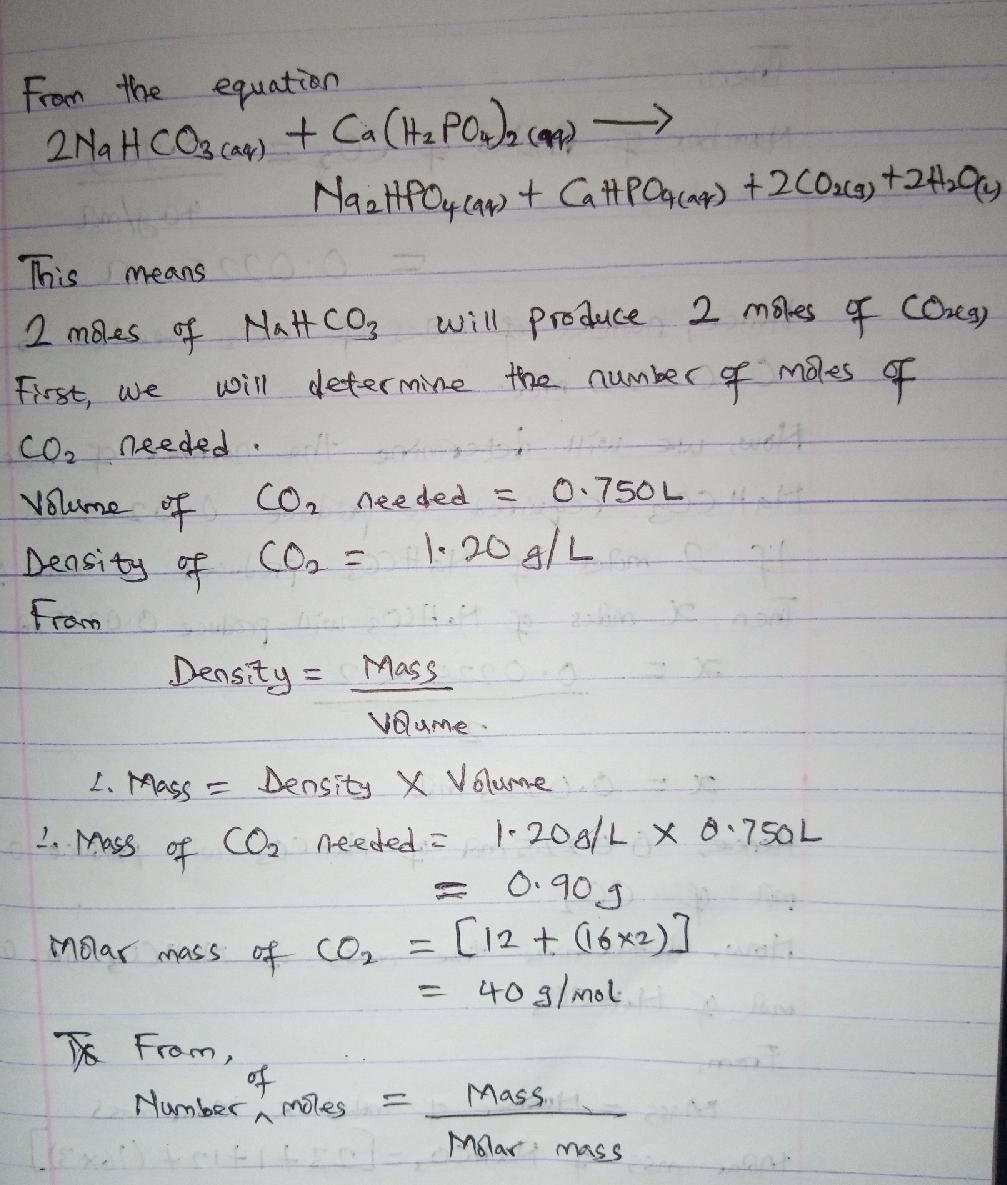 From the equation
2NaHCO3(aq) + Ca(H2PO4)2(aq) →
Na2HPO4(aq) + CaHPO4(aq) + 2CO2(g) + 2H2O(l)
This means
2 moles of NaHCO3 will produce 2 moles of CO2(g)
First, we will determine the number of moles of
CO2 needed.
Volume of CO2 needed = 0.750L
Density of CO2 = 1.20 g/L
From
Density = Mass
Volume.
∴ Mass = Density X Volume
∴ Mass of CO2 needed = 1.20g/L X 0.750L
= 0.90g
Molar mass of CO2 = [12 + (16x2)]
= 40g/mol
From,
Number of moles = Mass
Molar mass